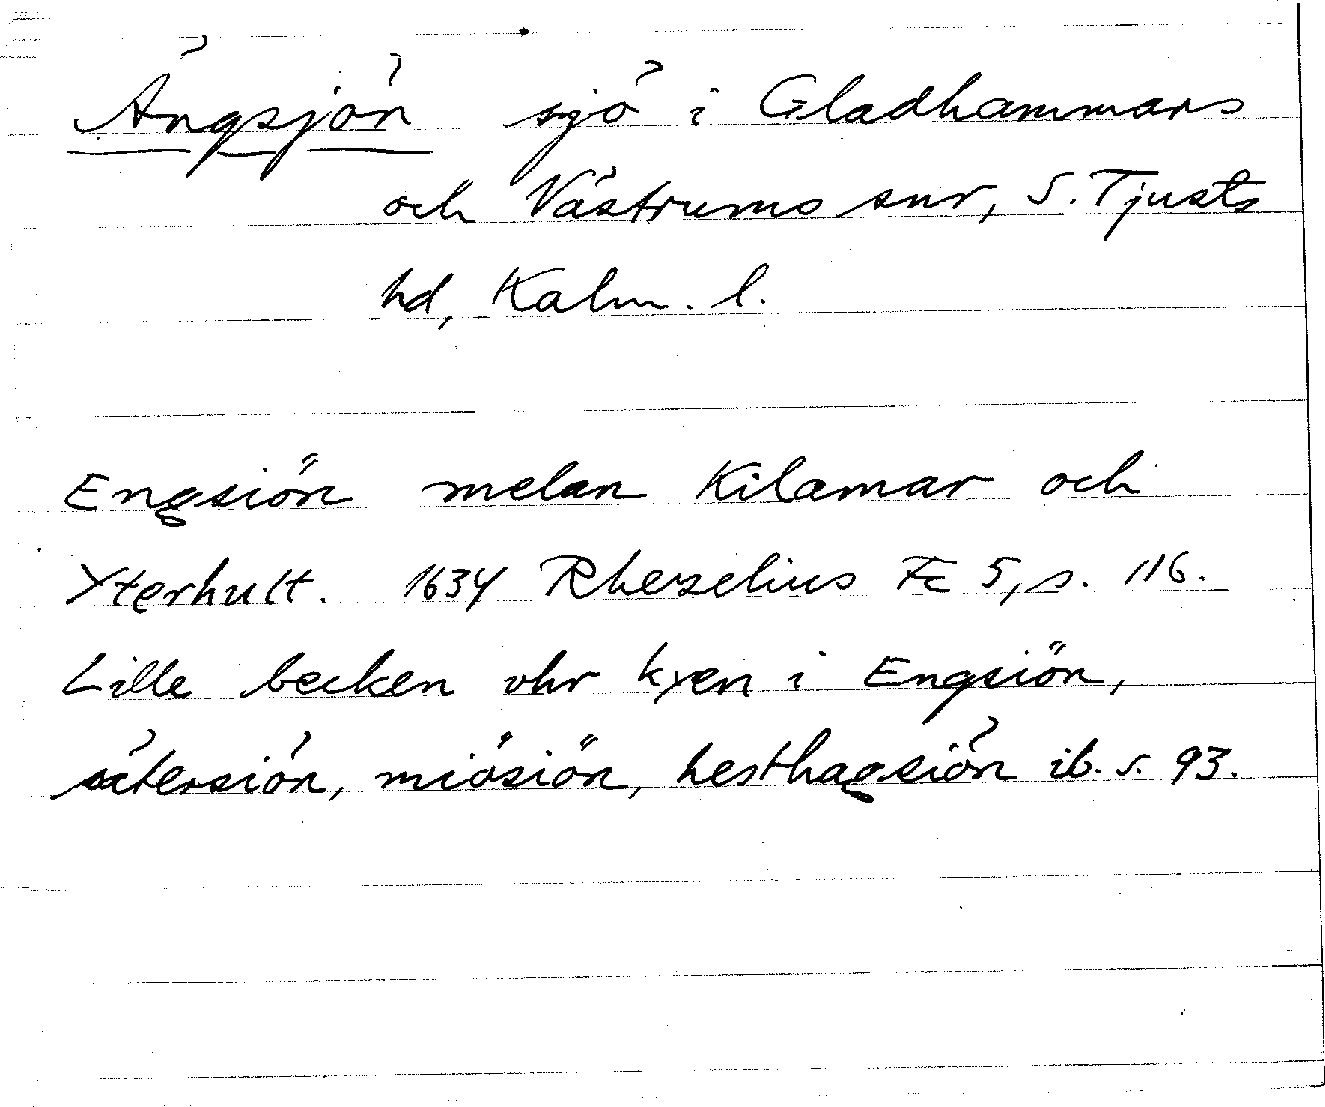 Ängsjön sjö i Gladhammars
och Västrums snr, S. Tjusts
hd, Kalm. l.
Engsiön melan Kilamar och
Yterhult. 1634 Rhezelius Fc 5, s. 116.
Lille becken vhr kyen i Engsiön,
sätersiön, miösiön, hesthagsiön ib. s. 93.